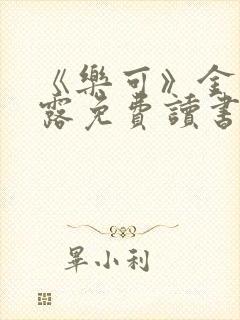 《樂可》金
露免費讀書
畢小利